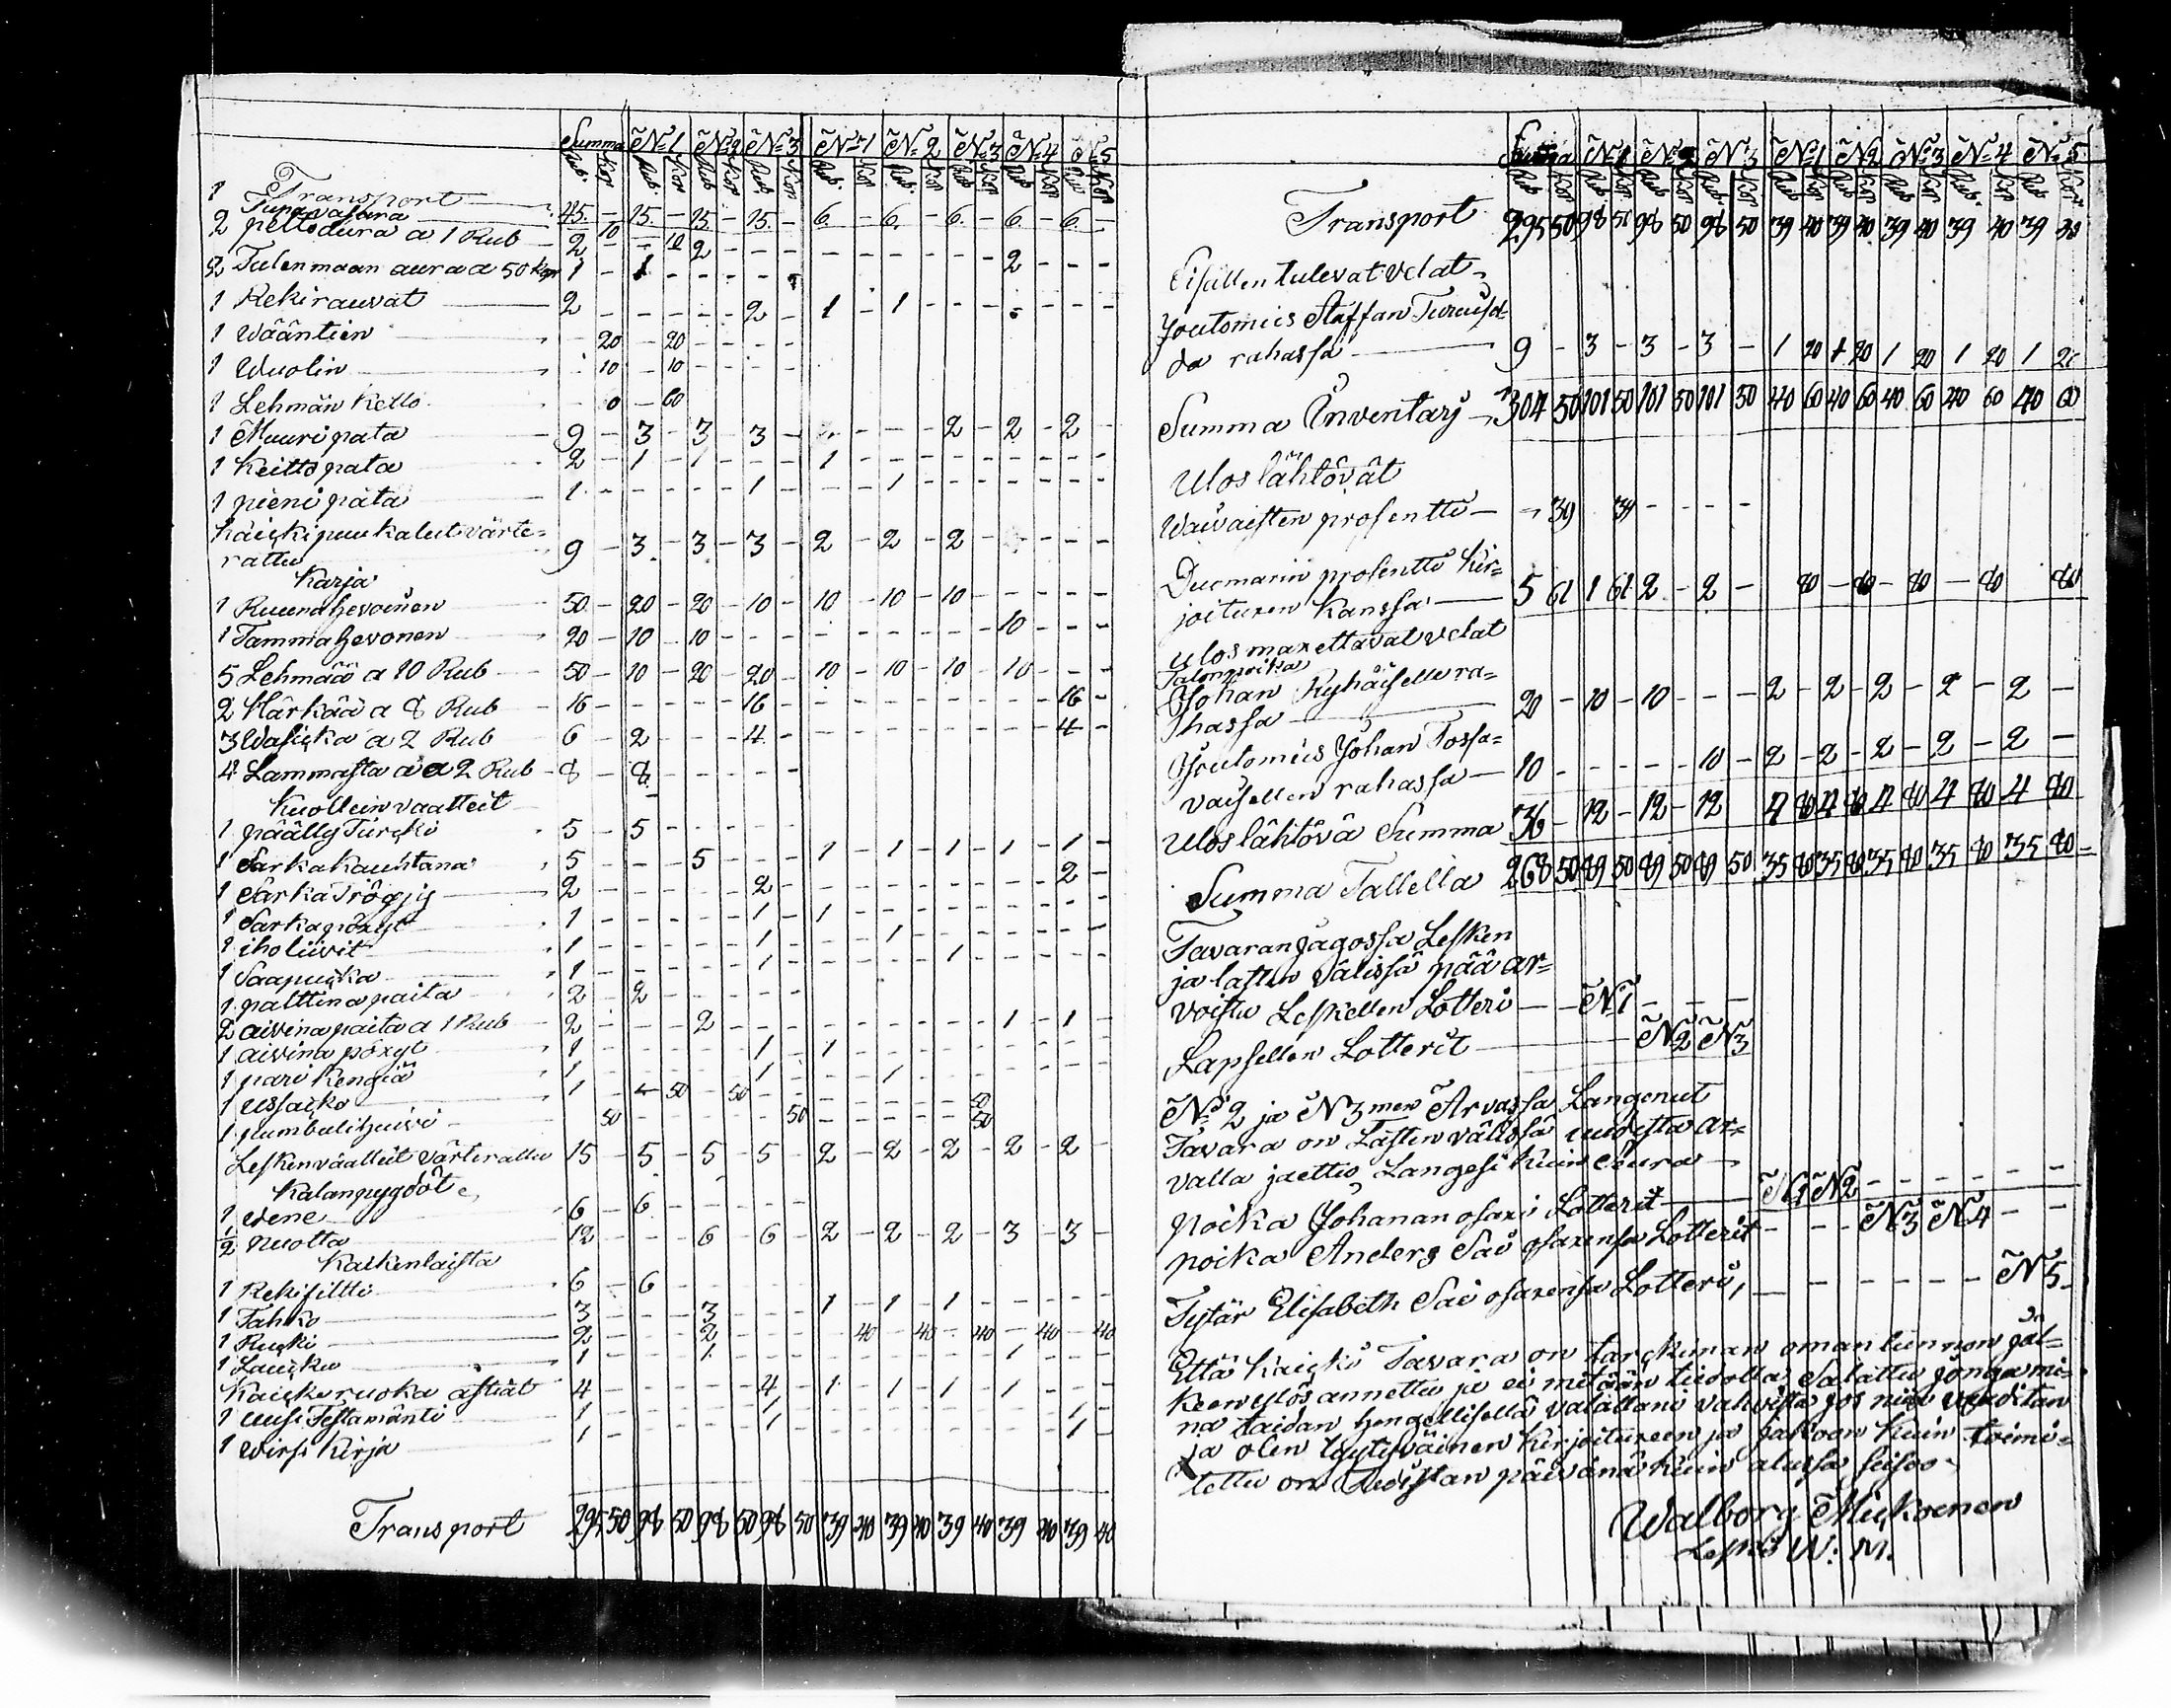 Summa N:1 N:2 N:3 N:1 N:2 N:3 N:4 N:5
Rub. Kop Rub. Kop Rub Kop Rub Kop Rub. Kop Rub. Kop Rub Kop Rub Kop Rub Kop
Transport 45 - 15 - 15 - 15 - 6 - 6 - 6 - 6 - 6 -
1 - 10 - 10
2 peltoaura a 1 Rub 2 - - - 2 - - - - - - - - - 2 - - -
2 Tulenmaan aura a 50 Kop 1 - 1 - - - -
1 Rekirauvat 2 - - - - - 2 - 1 - 1 - - - -
1 Wääntiin 20 - 20 - - - -
1 Wuolin 10 - 10 - - - -
1 Lehmän Kello - 60
1 Muuripata 9 - 3 - 3 - 3 - - - - - 2 - 2 - 2 -
1 Keittopata 2 - 1 - 1 - - - 1 - - - - - - -
1 pieni pata 1 - - - - - 1 - - - 1 - - - - -
Kaicki puukalut värte=
rattu 9 - 3 - 3 - 3 - 2 - 2 - 2 - - - - -
Karja
1 Ruunahevoinen 50 - 20 - 20 - 10 - 10 - 10 - 10 - - - - -
1 Tammahevonen 20 - 10 - 10 - - - - - - - - - 10 - - -
5 Lehmää a 10 Rub 50 - 10 - 20 - 20 - 10 - 10 - 10 - 10 - - -
2 Härkää a 8 Rub 16 - - - - - 16 - - - - - - - - - 16 -
3 Wasicka a 2 Rub 6 - 2 - - - 4 - - - - - - - - - 4 -
4 Lammasta a 2 Rub 8 - 8 - - - - -
Kuollein vaatteit
1 päälly Turcki 5 - 5 - - - - -
1 Sarkakauhtana 5 - - - 5 - - - 1 - 1 - 1 - 1 - 1 -
1 Sarka Tröyjy 2 - - - - - 2 - - - - - - - - - 2 -
1 Sarkapöxyt 1 - - - - - 1 - 1 - - - - - - -
1 iholiivit 1 - - - - - 1 - - - 1 - - - - -
1 Saapucka 1 - - - - - 1 - - - - - 1 - - -
1 palttina paita 2 - 2 - - - - -
2 aivina paita a 1 Rub 2 - - - 2 - - - - - - - - - 1 - 1 -
1 aivina pöxyt 1 - - - - - 1 - 1 - - - - - - -
1 pari Kengiä 1 - - - - - 1 - - - 1 - - - - -
1 Ussacko 1 - - 50 - 50 - - - - - - - 50
1 pumbulihuivi 50 - - - - - 50 - - - - - 50
Lesken väatteit värterattu 15 - 5 - 5 - 5 - 2 - 2 - 2 - 2 - 2 -
Kalanpyydöt
1 Wene 6 - 6 - - - - -
1/2 nuotta 12 - - - 6 - 6 - 2 - 2 - 2 - 3 - 3 -
Kaikenlaista
1 Rekifiltti 6 - 6 - - - - -
1 Tahko 3 - - - 3 - - - 1 - 1 - 1 - - - - -
1 Rucki 2 - - - 2 - - - - 40 - 40 - 40 - 40 - 40
1 Laucku 1 - - - 1 - - - - - - - - - 1 - - -
Kaicki ruoka astiat 4 - - - - - 4 - 1 - 1 - 1 - 1 - - -
1 uusi Testamänti 1 - - - - - 1 - - - - - - - - - 1 -
1 Wirsi Kirja 1 - - - - - 1 - - - - - - - - - 1 -
Transport 295 50 98 50 98 50 98 50 39 40 39 40 39 40 39 40 39 40
Summa N:1 N:2 N:3 N:1 N:2 N:3 N:4 N:5
Rub Kop Rub Kop Rub Kop Rub. Kop Rub. Kop Rub Kop Rub. Kop Rub. Kop Rub Kop
Transport 295 50 98 50 98 50 98 50 39 40 39 40 39 40 39 40 39 40
Sisällen tulevat velat
Joutomies Staffan Turuisa=
da rahassa 9 - 3 - 3 - 3 - 1 20 1 20 1 20 1 20 1 20
Summa Inventarj 304 50 101 50 101 50 101 50 40 60 40 60 40 60 40 60 40 60
Ulos lähtövät
Waivaisten prosentti - 39 39 - - - -
Ducmarin prosentti Kir=
joituxen Kanssa 5 61 1 61 2 - 2 - 80 - 80 - 80 - 80 80
Ulos maxettavat velat
Talonpoika
Johan Ryhäiselle ra=
hassa 20 - 10 - 10 - - - 2 - 2 - 2 - 2 - 2 -
Joutomies Johan Tossa=
vaisellen rahassa 10 - - - - - 10 - 2 - 2 - 2 - 2 - 2 -
Ulos lähtövä Summa 36 - 12 - 12 - 12 4 80 4 80 4 80 4 80 4 80
Summa Tallella 268 50 89 50 89 50 89 50 35 80 35 80 35 80 35 80 35 80
Tavaran Jagossa Lesken
ja lasten välissä pää ar=
voista Leskellen Lotteri - - N:1 - - -
Lapsellen Lotterit N:2 N:3
N:2 ja N:3 men Arvassa Langenut
Tavara on Lasten välissä uudesta ar=
valla jaettu, Langesi kuin seura
poika Johanan osaxi Lotterit N:1 N:2 - - - - - -
poika Anders Sai osaxensa Lotterit - - - N:3 N:4 - -
Tytär Elisabeth Sai osaxensa Lotteri, - - - - - - N:5
Että Kaicki Tavara on tarckiman oman tunnon jäl=
keen ulos annettu ja ei mitään tiedolla Salattu jonga mi=
na taidan hengellisellä valallani vahvista jos niin vaaditan
ja olen tyytyväinen Kirjoituxeen ja jakoon Kuin toimi=
tettu on päivänä kuin alussa seisoo
Walborg Mickoenen
Leski W: M: